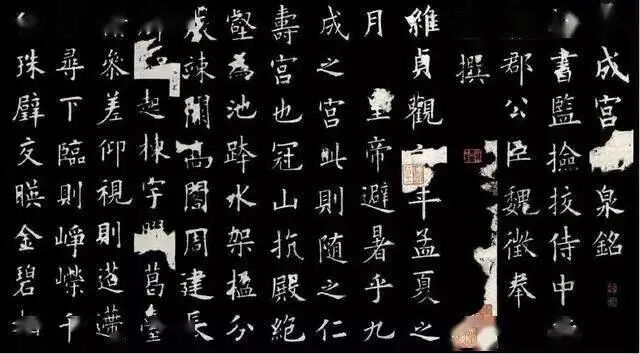 成宮泉銘
書監撿挍侍中
郡公臣魏徵奉
撰
維貞觀年孟夏之
月皇帝避暑乎九
成之宮此則隨之仁
壽宮也冠山抗殿絕
壑為池跨水架楹分
巖竦闕高閣周建長
起棟宇膠葛臺
參差仰視則迢遰
尋下臨則崢嶸千
珠璧交暎金碧